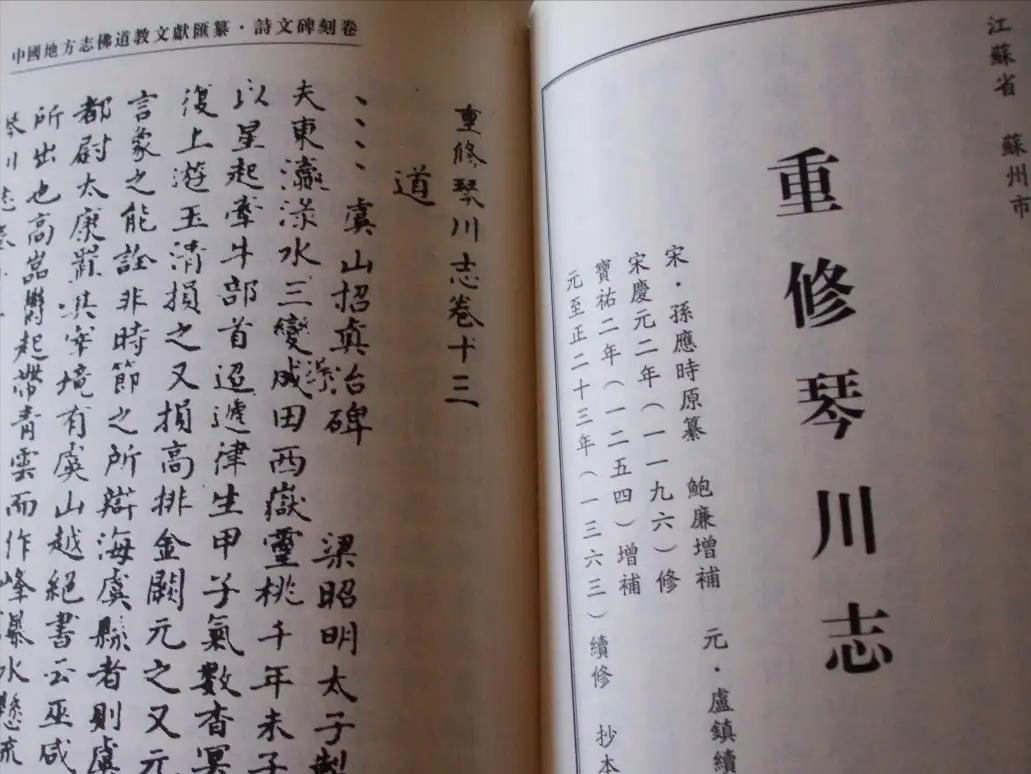 江蘇省　蘇州市
重修琴川志
宋·孫應時原纂　鮑廉增補　元·盧鎮續
宋慶元二年（一一九六）修
寶祐二年（一二五四）增補
元至正二十三年（一三六三）續修　抄本
中國地方志佛道教文獻匯纂·詩文碑刻卷
重修琴川志卷十三
道
、、、虞山招真治碑　梁昭明太子製
夫東瀛淥水三變成田西嶽靈桃千年未子
以星起牽牛部首迢遞津生甲子氣數杳冥
復上遊玉清損之又損高排金闕元之又元
言象之能詮非時節之所辯海虞縣者則虞
都尉太康置其宰境有虞山越絕書云巫咸
所出也高嵓鬱起帶青雲而作峰瀑水懸流